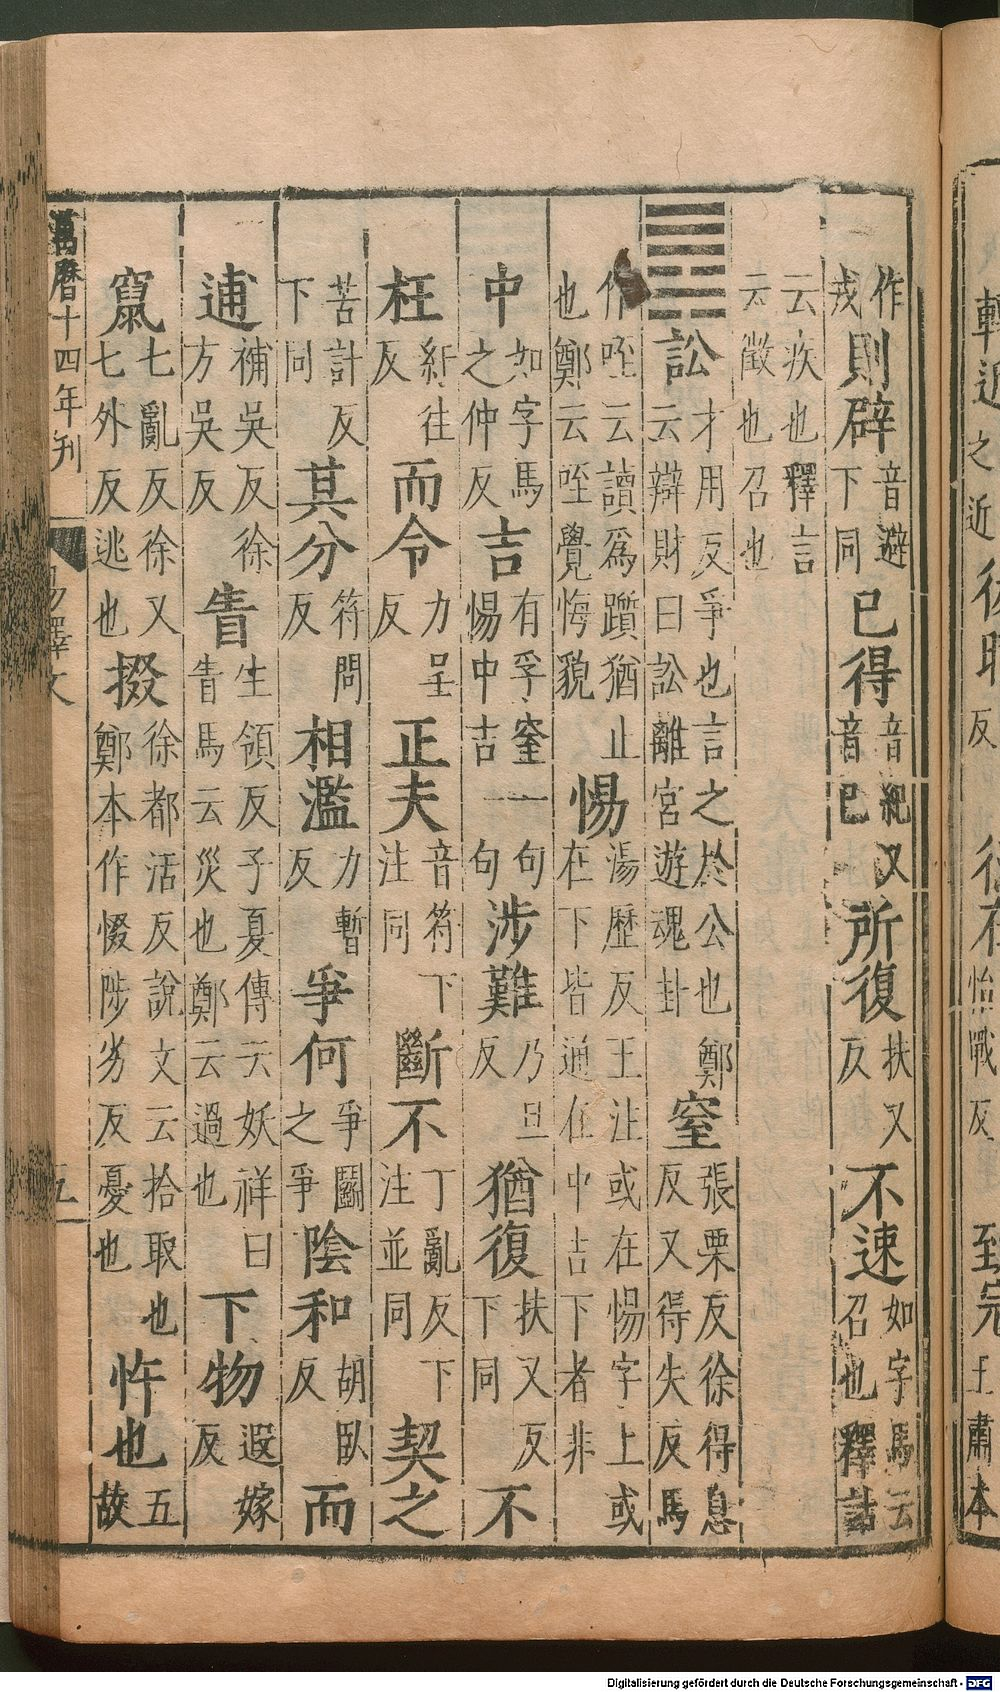 之近
反
王肅本
作戎則辟音避下同已得音紀又音巳所復扶又反不速如字馬云召也釋詁
云疾也釋言云徵也召也
訟才用反爭也言之於公也鄭云辯財曰訟離宮遊魂卦窒張栗反徐得息反又得失反馬
作咥云讀爲躓猶止也鄭云咥覺悔貌惕湯歷反王注或在惕字上或在下皆通在中吉下者非
中如字馬之仲反吉有孚窒一句惕中吉一句涉難乃旦反猶復扶又反下同不
枉紆往反而令力呈反正夫音符下注同斷不丁亂反下注並同契之
苦計反下同其分符問反相濫力暫反爭何爭鬭之爭陰和胡臥反而
逋補吳反徐方吳反眚生領反子夏傳云妖祥曰眚馬云災也鄭云過也下物遐嫁反
竄七亂反徐又七外反逃也掇徐都活反說文云拾取也鄭本作惙陟劣反憂也忤也五故
萬曆十四年刊
易釋文
五
Digitalisierung gefördert durch die Deutsche Forschungsgemeinschaft - DFG